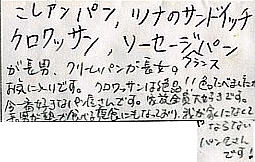 こしアンパン，ツナのサンドイッチ
クロワッサン，ソーセージパン
が長男、クリームパンが長女。フランス
お気に入りです。クロワッサンは絶品!!色々たべましたが
今一番好きなパン屋さんです。家族全員大好きです。
長男が熱が食べる夜食にもなっており，我が家になくて
ならない
パン屋さん
です!